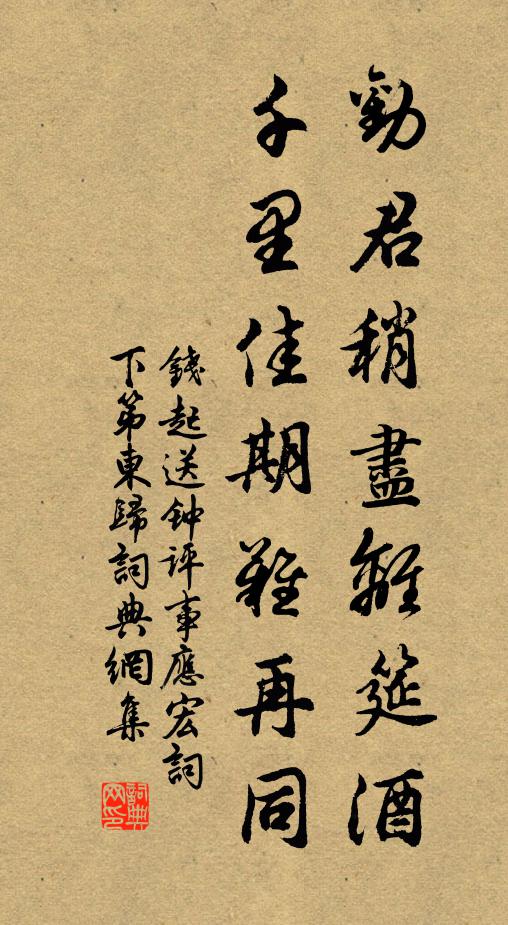 勸君稍盡離筵酒
千里佳期難再同
錢起送钟評事應宏詞
下第東歸詞典網集
詞典網印